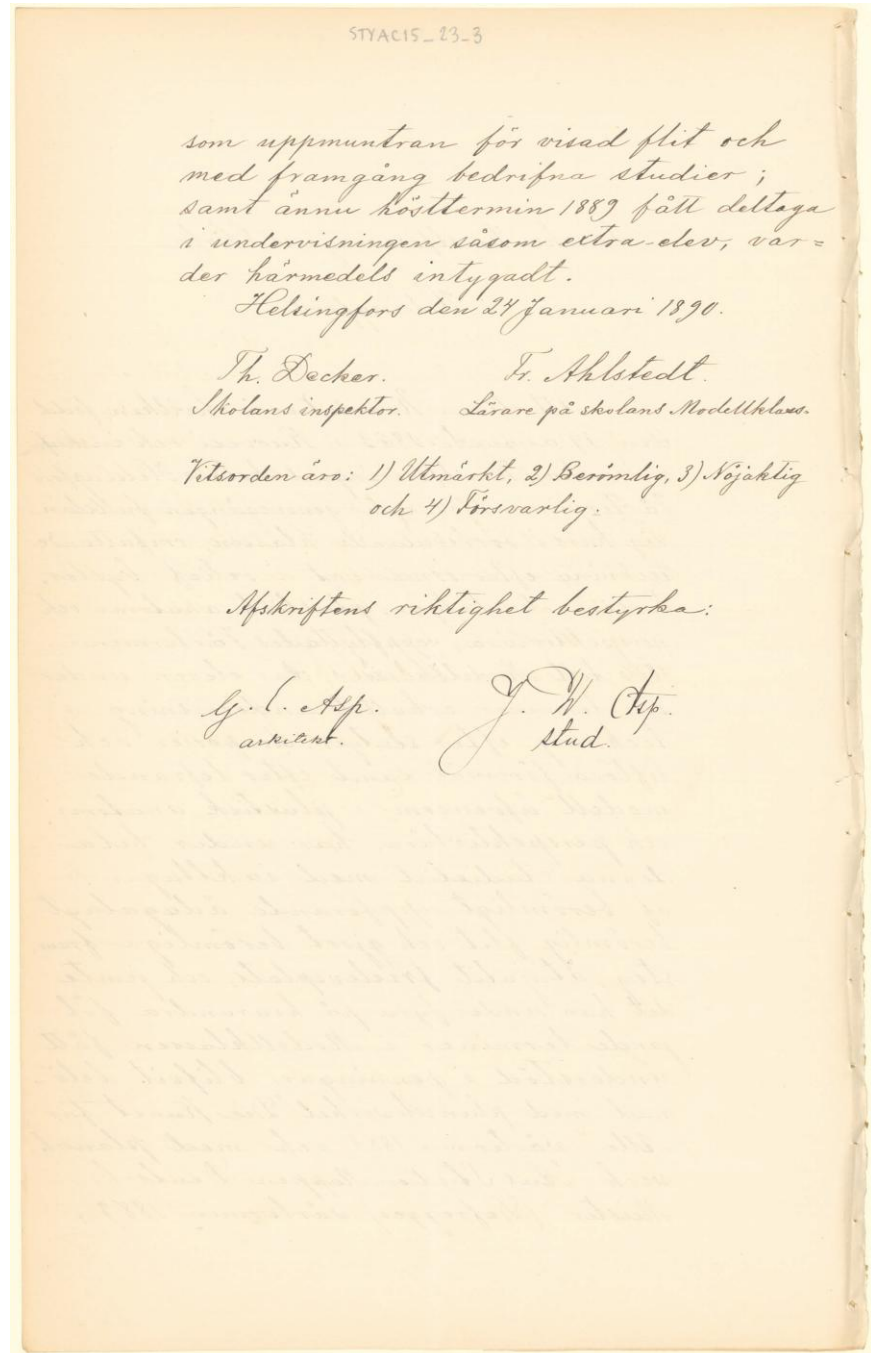 STYAC15_23_3
som uppmuntran för visad flit och
med framgång bedrifna studier;
samt ännu hösttermin 1889 fått deltaga
i undervisningen såsom extra-elev, var=
der härmedels intygadt.
Helsingfors den 24 Januari 1890.
Th. Decker. Fr. Ahlstedt.
Skolans inspektor. Lärare på skolans Modellklass.
Vitsorden äro: 1) Utmärkt, 2) Berömlig, 3) Nöjaktig
och 4) Försvarlig.
Afskriftens riktighet bestyrka:
G. E. Asp. J. W. Asp.
arkitekt. stud.